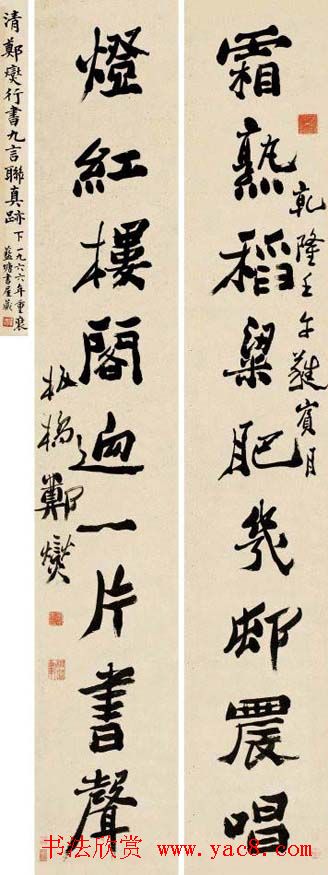 霜熟稻粱肥幾邨農唱
乾隆壬午蕤賓月
燈紅樓閣迥一片書聲
板橋鄭燮
清鄭燮行書九言聯真跡下一九六六年重裝
藍塘書屋藏
书法欣赏 www.yac8.com